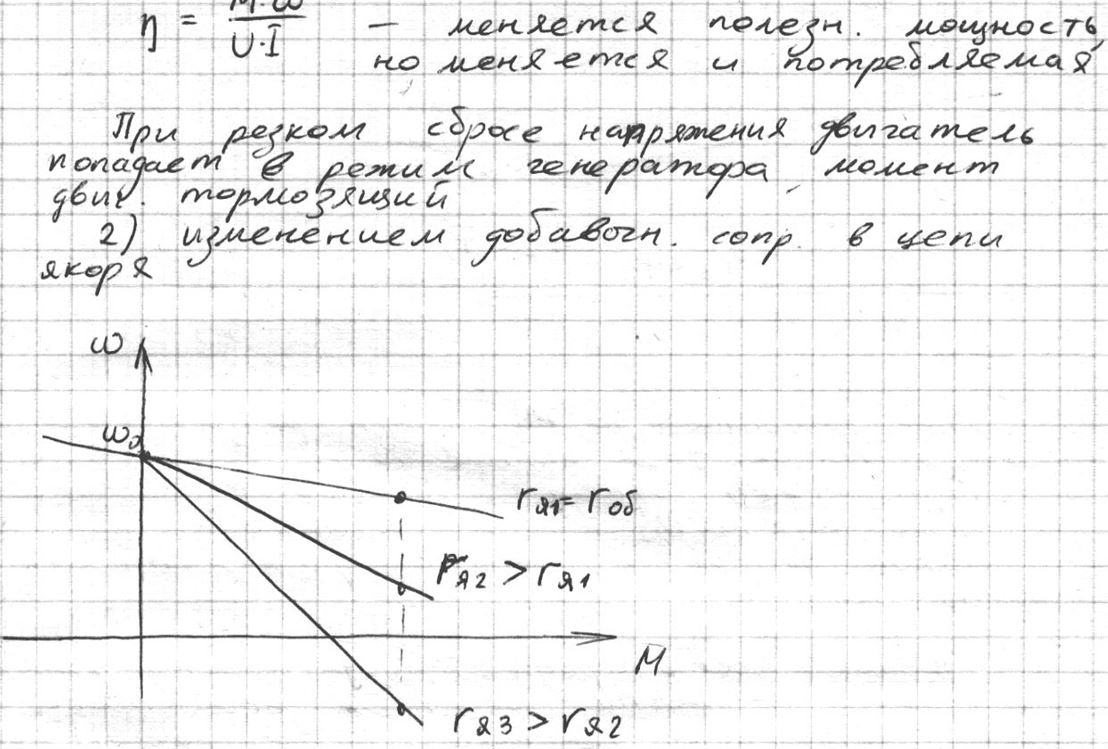 η = M·ω / U·I — меняется полезн. мощность,
но меняется и потребляемая
При резком сбросе напряжения двигатель
попадает в режим генератора, момент
двиг. тормозящий
2) изменением добавочн. сопр. в цепи
якоря
ω
ω₀
rя1 = rоб
rя2 > rя1
M
rя3 > rя2